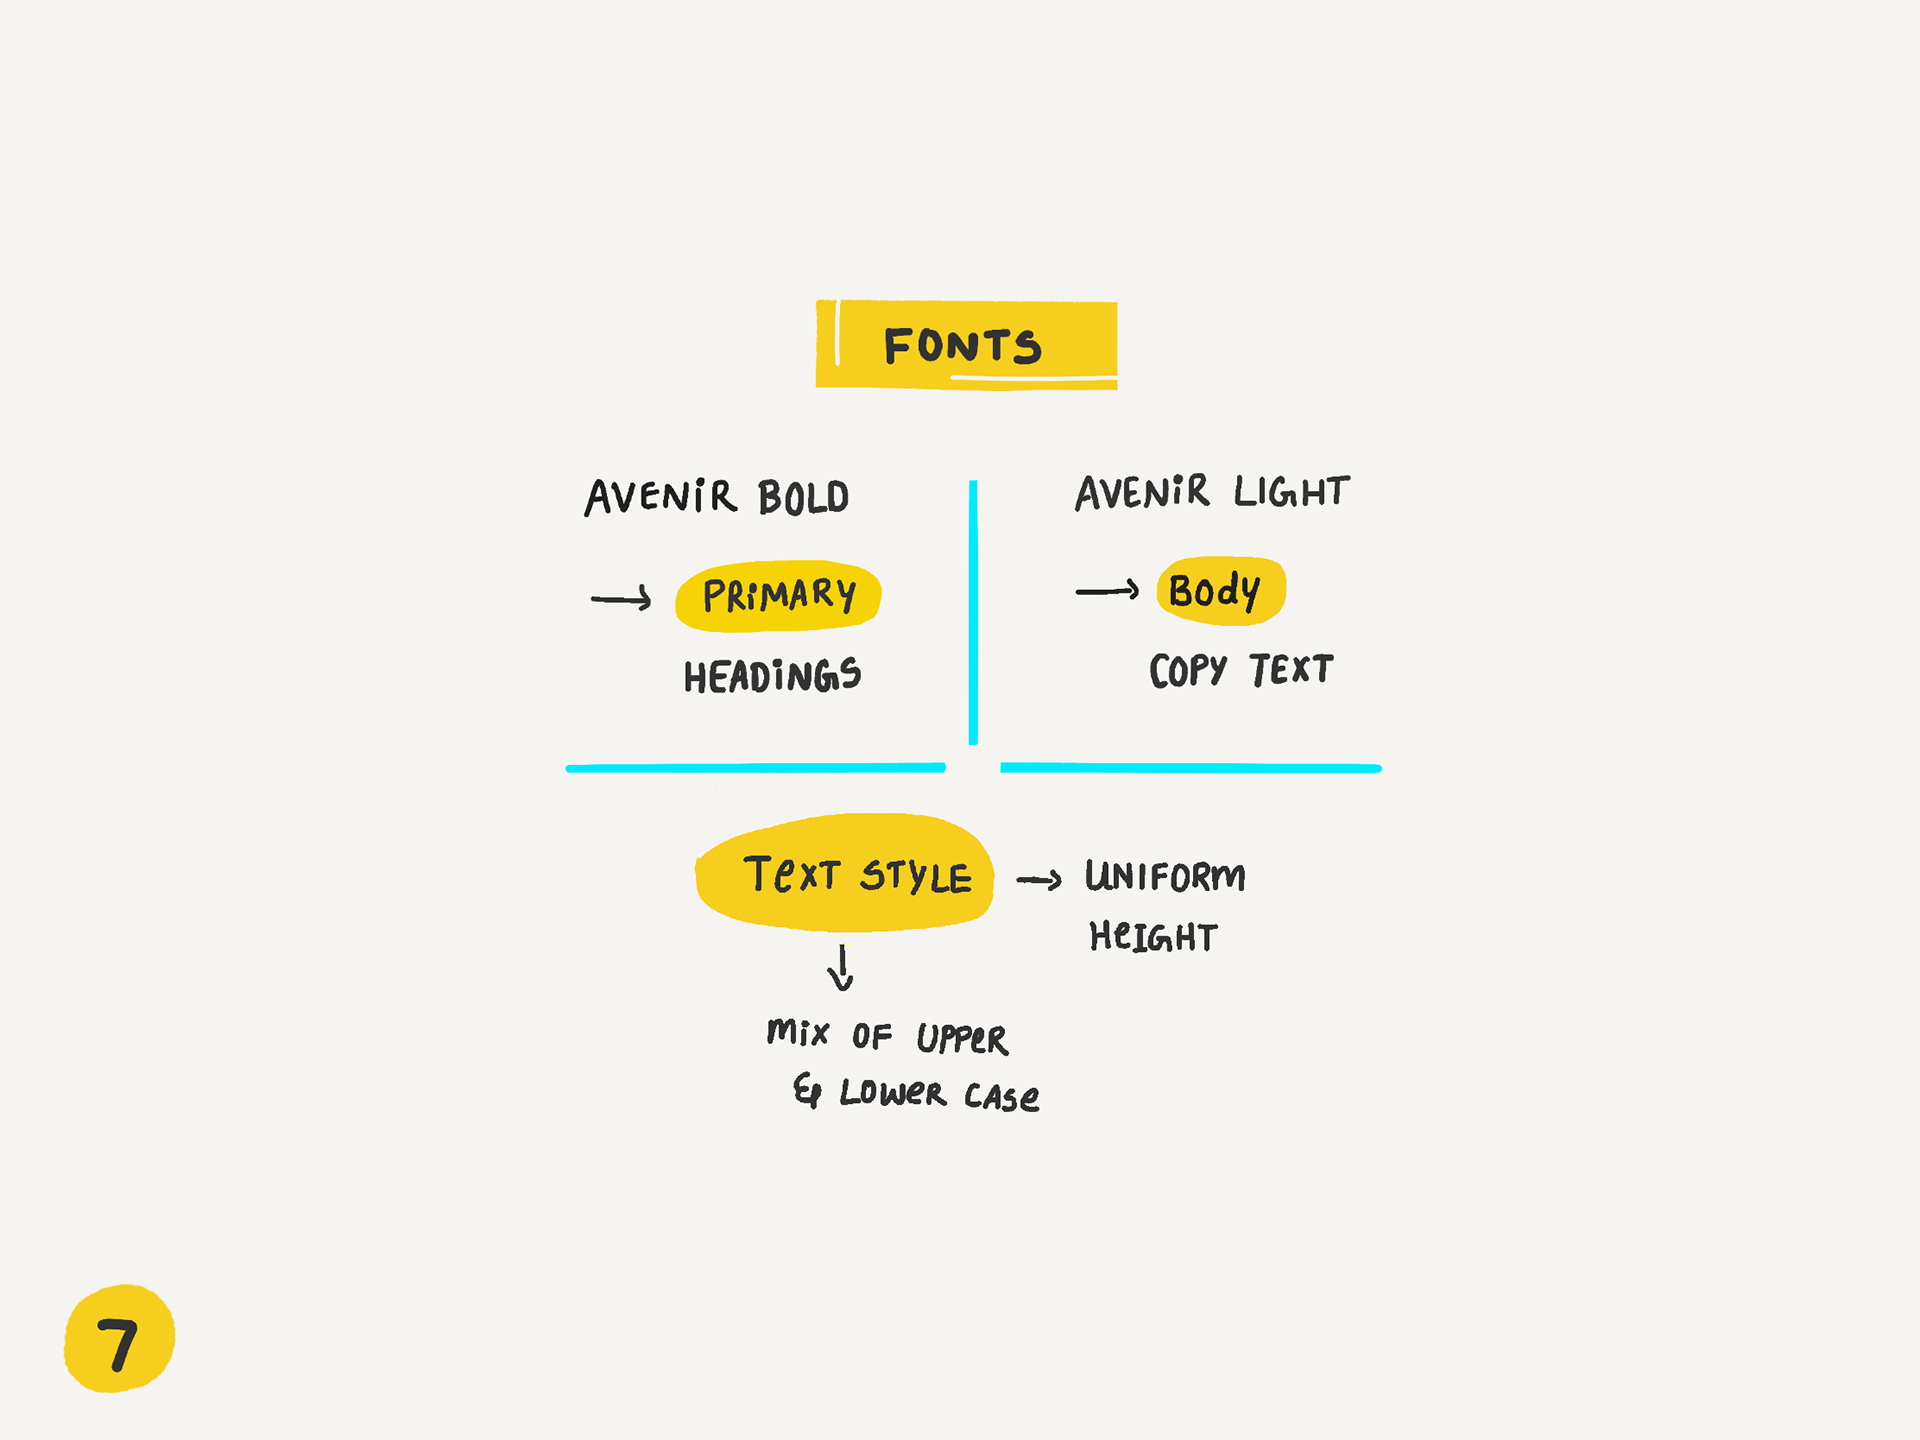 FONTS
AVENiR BOLD
→ PRiMARY
HEADiNGS
AVENiR LIGHT
→ BOdy
COPY TEXT
TeXT STYLE → UNIFORm
HeIGHT
↓
miX OF UPPeR
& LOWeR CASe
7